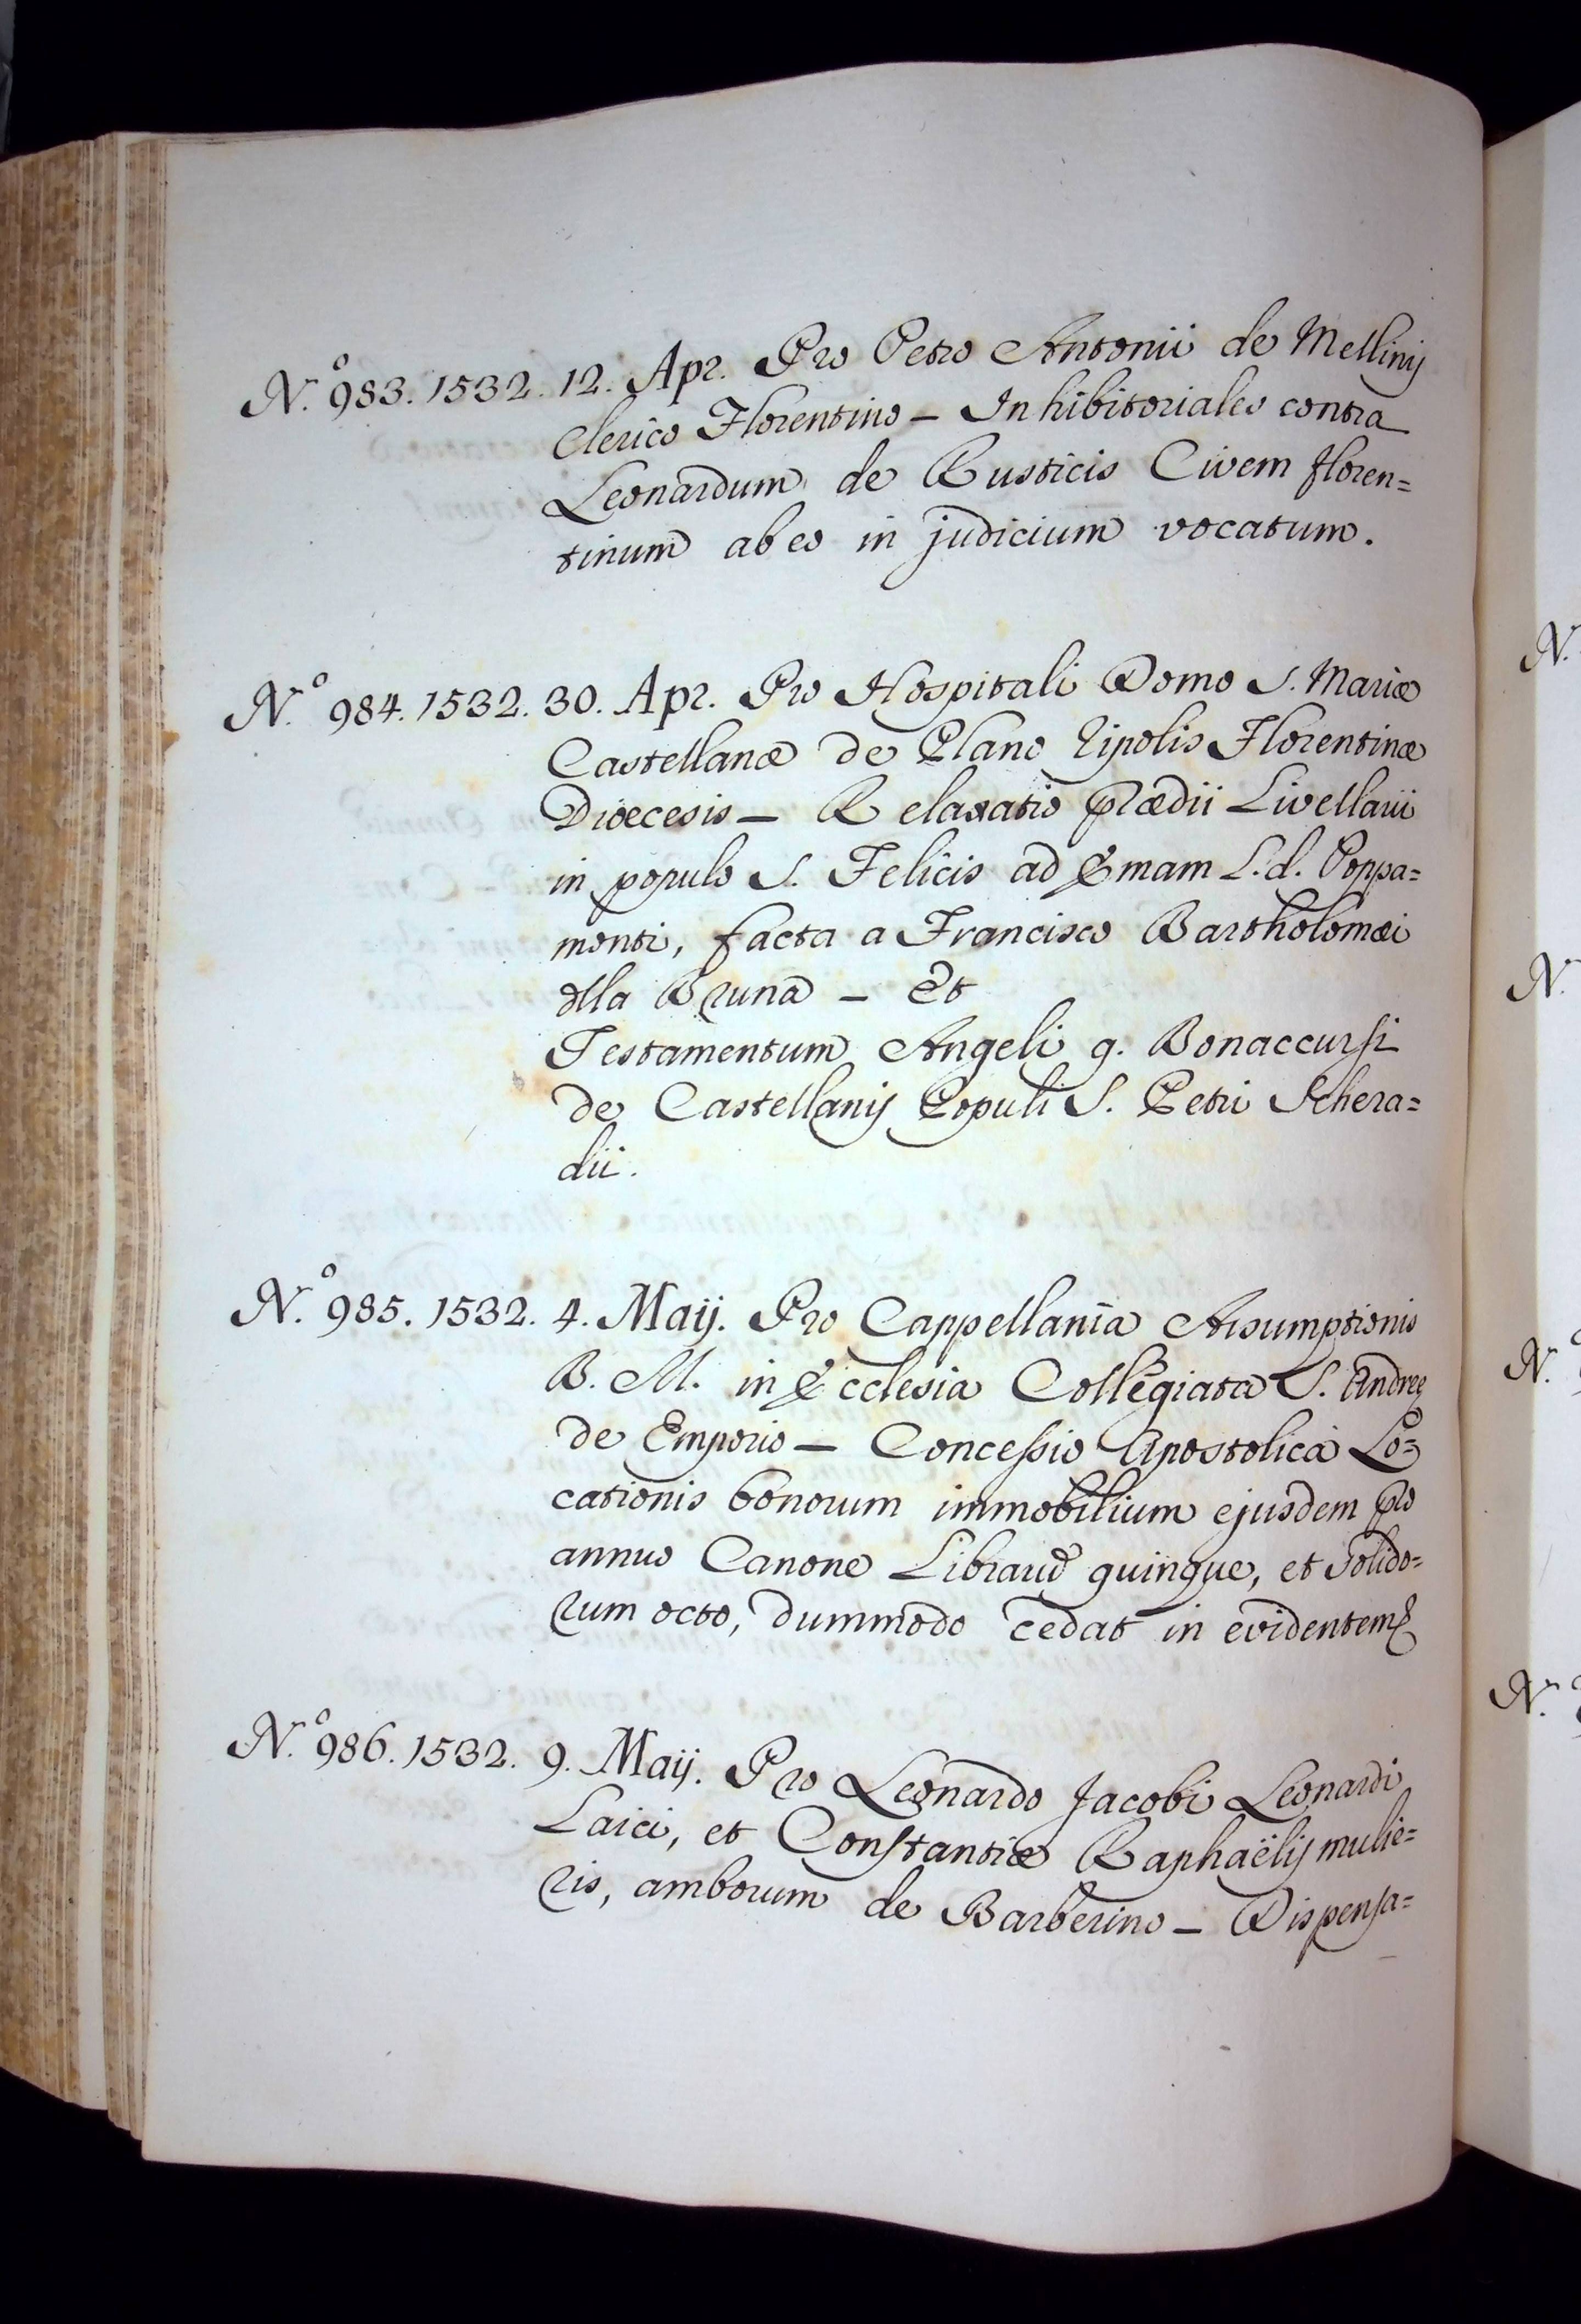 N.º 983. 1532. 12. Apr. Pro Petro Antonii de Mellinij
Clerico Florentino – Inhibitoriales contra
Leonardum de Rusticis Civem floren=
tinum ab eo in judicium vocatum.
N.º 984. 1532. 30. Apr. Pro Hospitali Domo S. Mariæ
Castellanæ de Plano Ripolis Florentinæ
Dioecesis – Relaxatio prædii Livellarii
in populo S. Felicis ad Emam L.d. Poppa=
monti, facta a Francisco Bartholomæi
dlla Bruna – Et
Testamentum Angeli q. Bonaccursi
de Castellanij Populi S. Petri Schera=
dii.
N.º 985. 1532. 4. Maij. Pro Cappellania Assumptionis
B. M. in Ecclesia Collegiata S. Andreę
de Emporio – Concessio Apostolica Lo=
cationis bonorum immobilium ejusdem pro
annuo Canone Librarū quinque, et Solido=
rum octo, dummodo cedat in evidentem
N.º 986. 1532. 9. Maij. Pro Leonardo Jacobi Leonardi
Laici, et Constantiæ Raphaëlij mulie=
ris, amborum de Barberino – Dispensa=
N.
N.
N.
N.